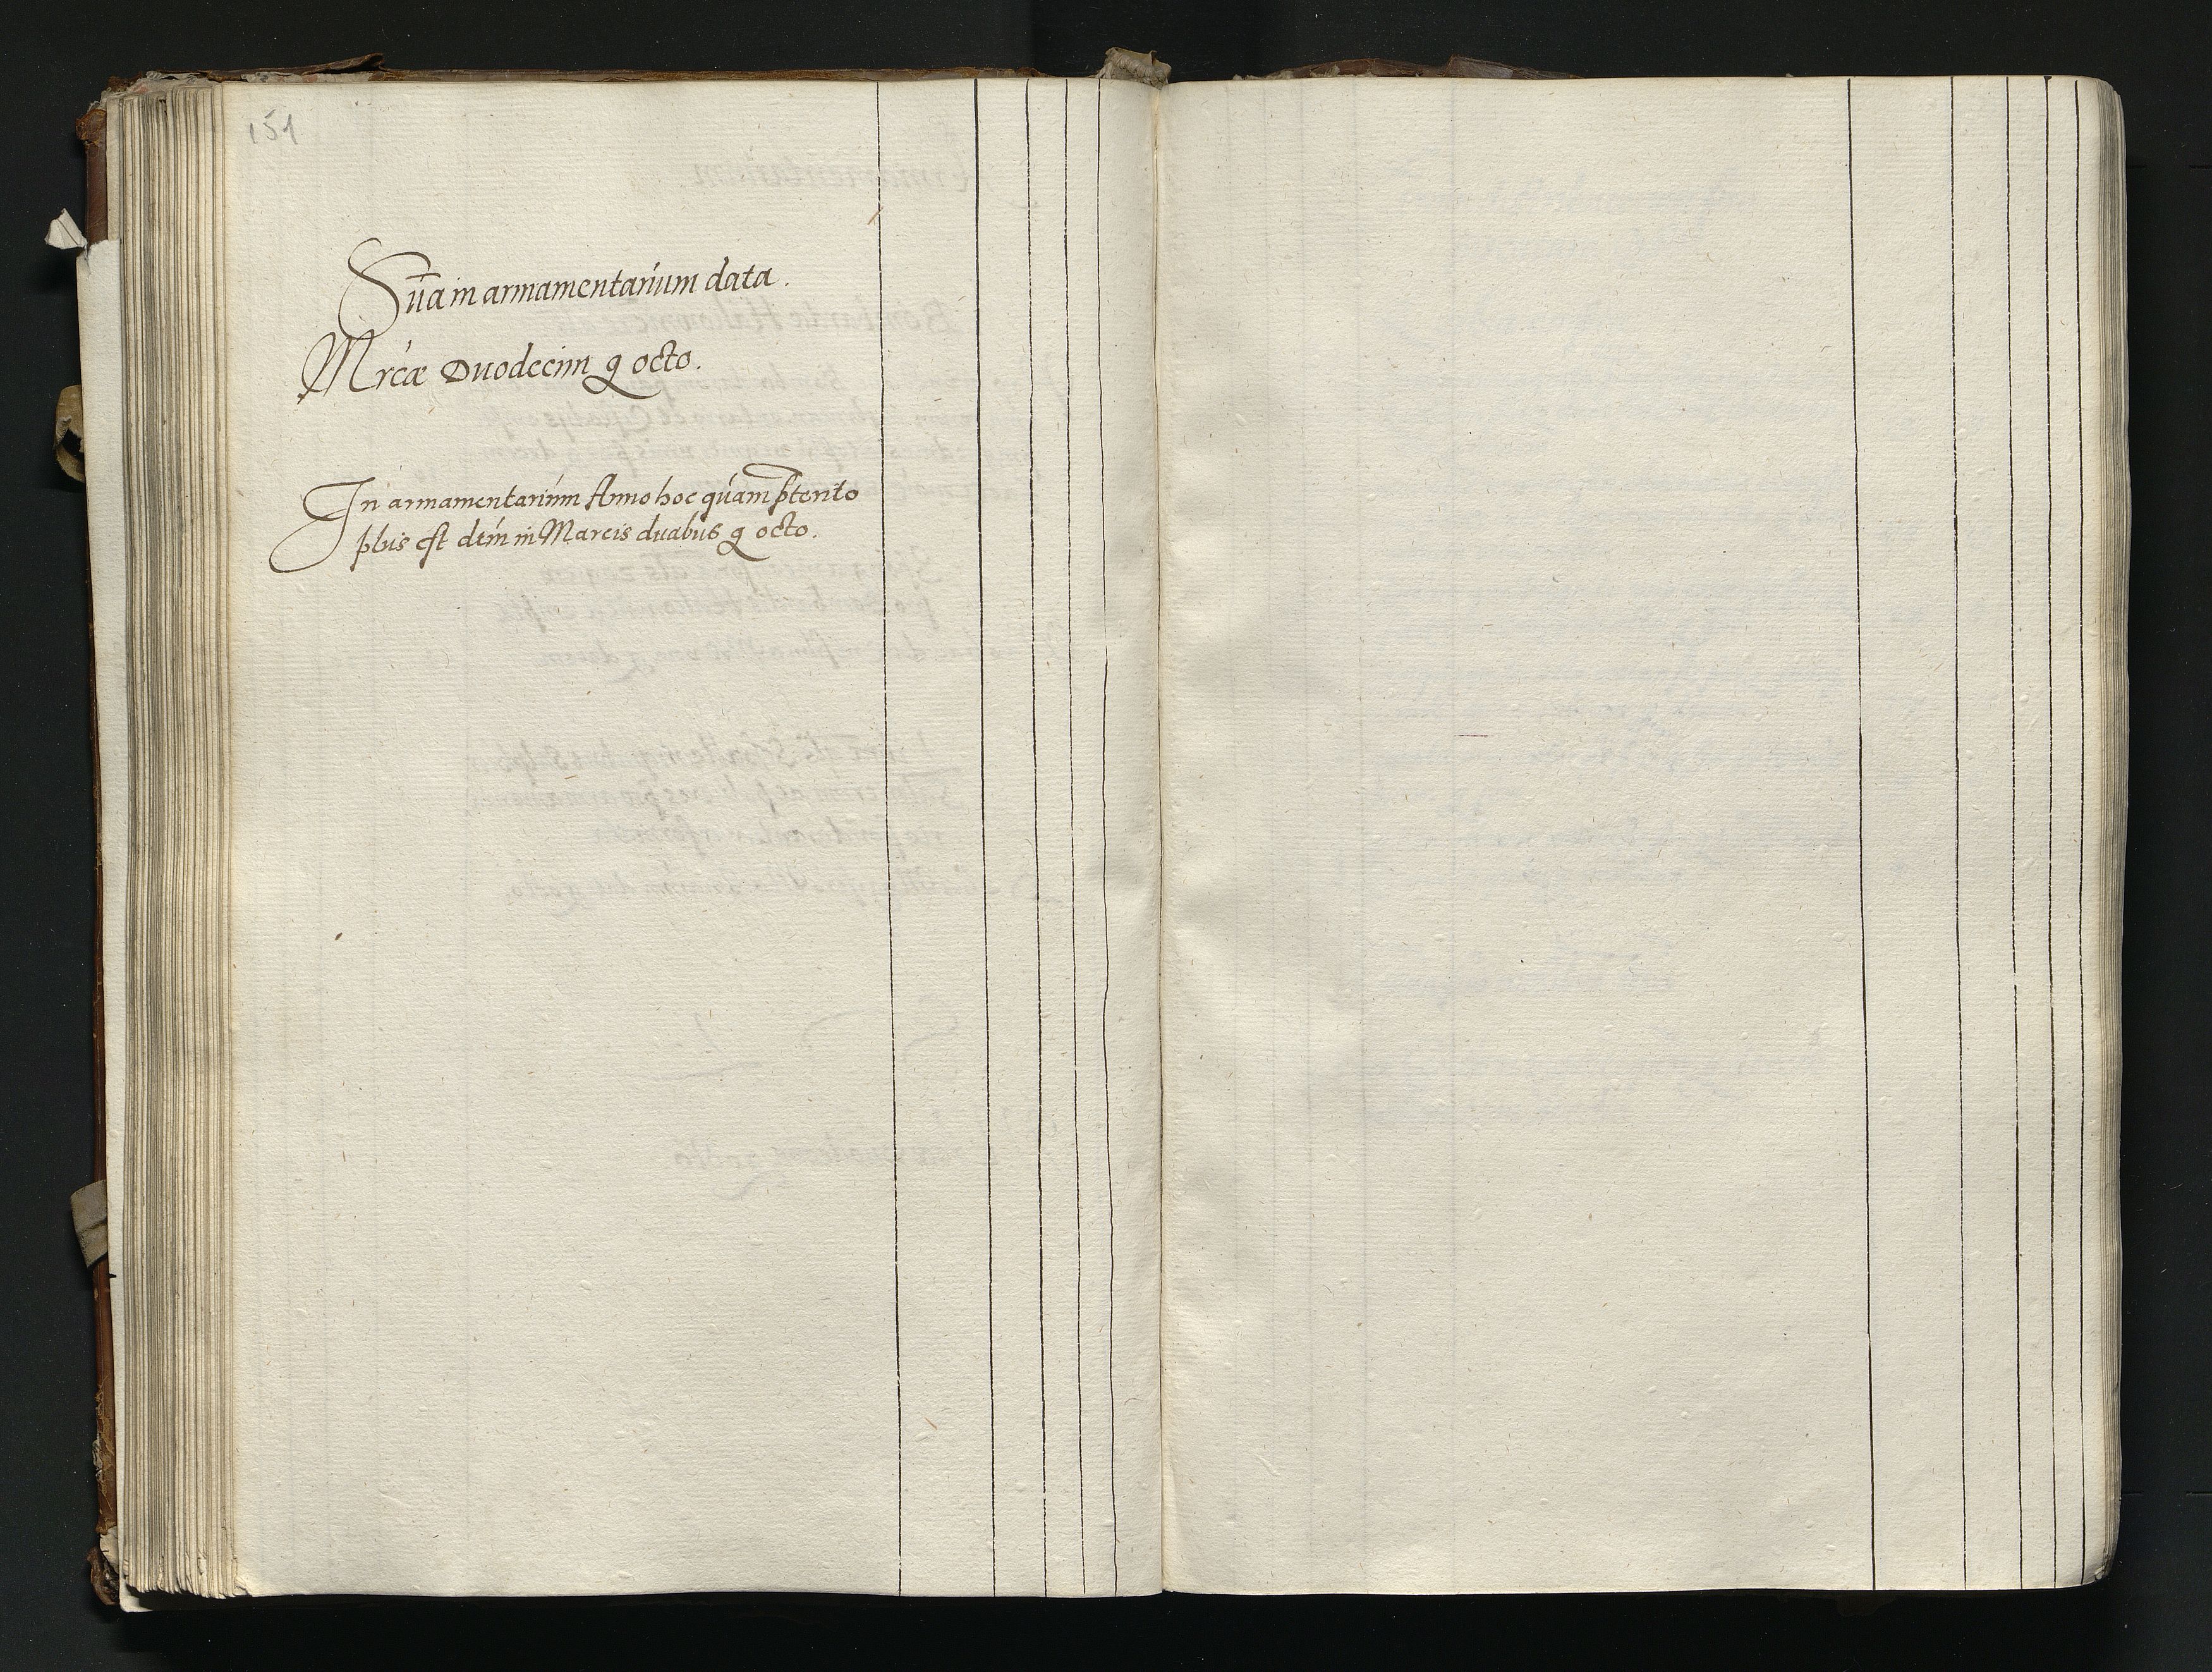 151
Sūa in armamentarium data.
Mrcæ Duodecim g octo.
In armamentarium Anno hoc quam p̄terito
plus est dtm in Marcis duabus g octo.